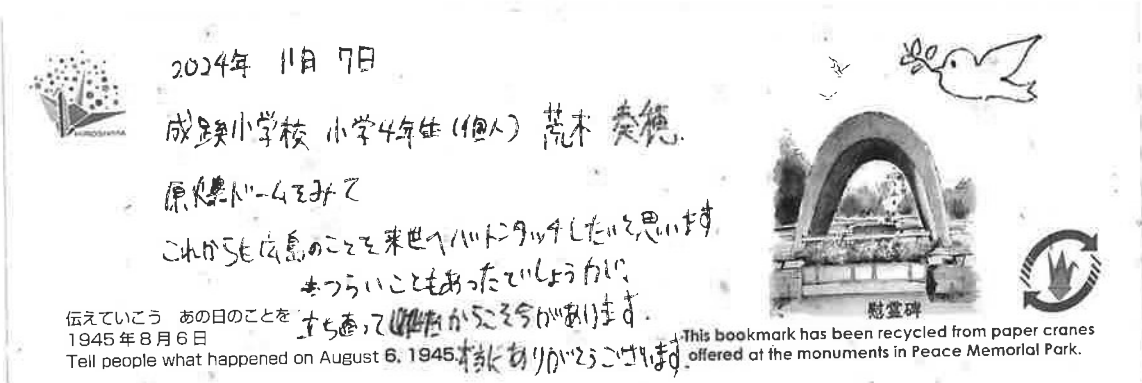 2024年 11月 7日
HIROSHIMA
成蹊小学校 小学4年生(個人) 荒木 奏穂
原爆ドームをみて
これからも広島のことを来世へバトンタッチしたいと思います
つらいこともあったでしょうが、
立ち直って からこそ今があります。
本当にありがとうございます。
慰霊碑
伝えていこう あの日のことを
1945年8月6日
Tell people what happened on August 6, 1945.
This bookmark has been recycled from paper cranes
offered at the monuments in Peace Memorial Park.